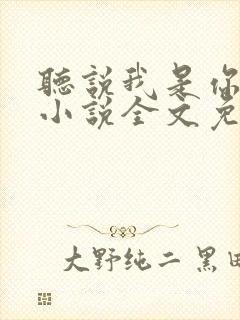 聽說我是你
小說全文免
大野纯二 黑田